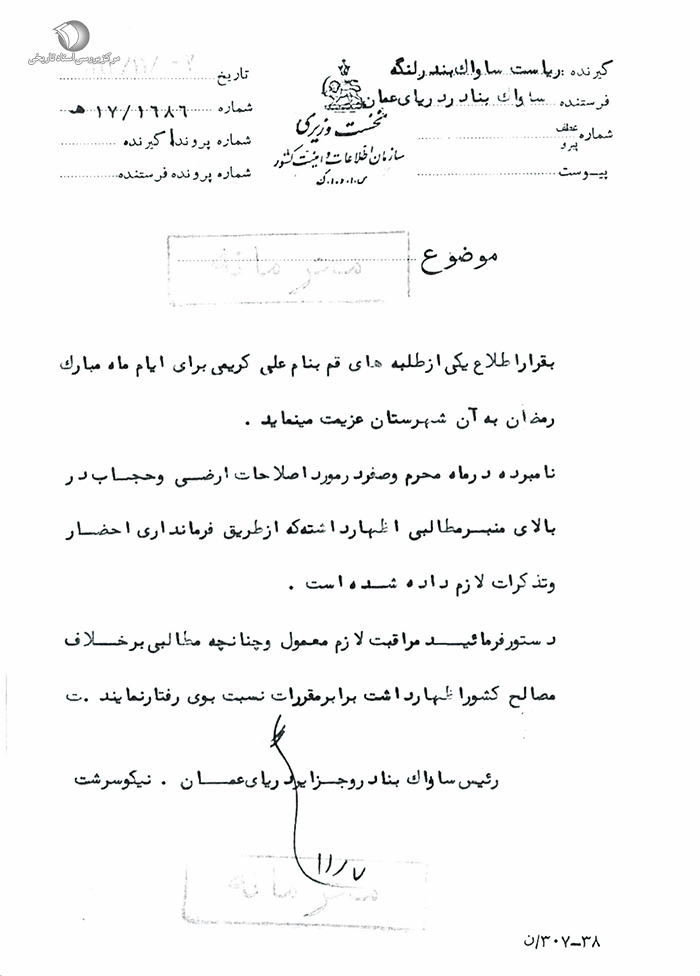 مرکز بررسی اسناد تاریخی
گیرنده : ریاست ساواك بندرلنگه
فرستنده ساواك بنادر دریای عمان
شماره عطف
پیرو
پیوست
نخست وزیری
سازمان اطلاعات و امنیت کشور
س.ا.و.ا.ك
تاریخ
شماره ۱۷/۱۶۸۶ هـ
شماره پرونده گیرنده
شماره پرونده فرستنده
موضوع
محرمانه
بقرار اطلاع یکی از طلبه های قم بنام علی کریمی برای ایام ماه مبارك
رمضان به آن شهرستان عزیمت مینماید .
نامبرده در ماه محرم وصفر در مورد اصلاحات ارضی وحجاب در
بالای منبر مطالبی اظهار داشته که از طریق فرمانداری احضار
وتذکرات لازم داده شده است .
دستور فرمائید مراقبت لازم معمول وچنانچه مطالبی بر خلاف
مصالح کشور اظهار داشت برابر مقررات نسبت بوی رفتار نمایند .ت
رئیس ساواك بنادر وجزایر دریای عمان . نیکوسرشت
۱۱/۷
محرمانه
۳۸-۳۰۷/ن